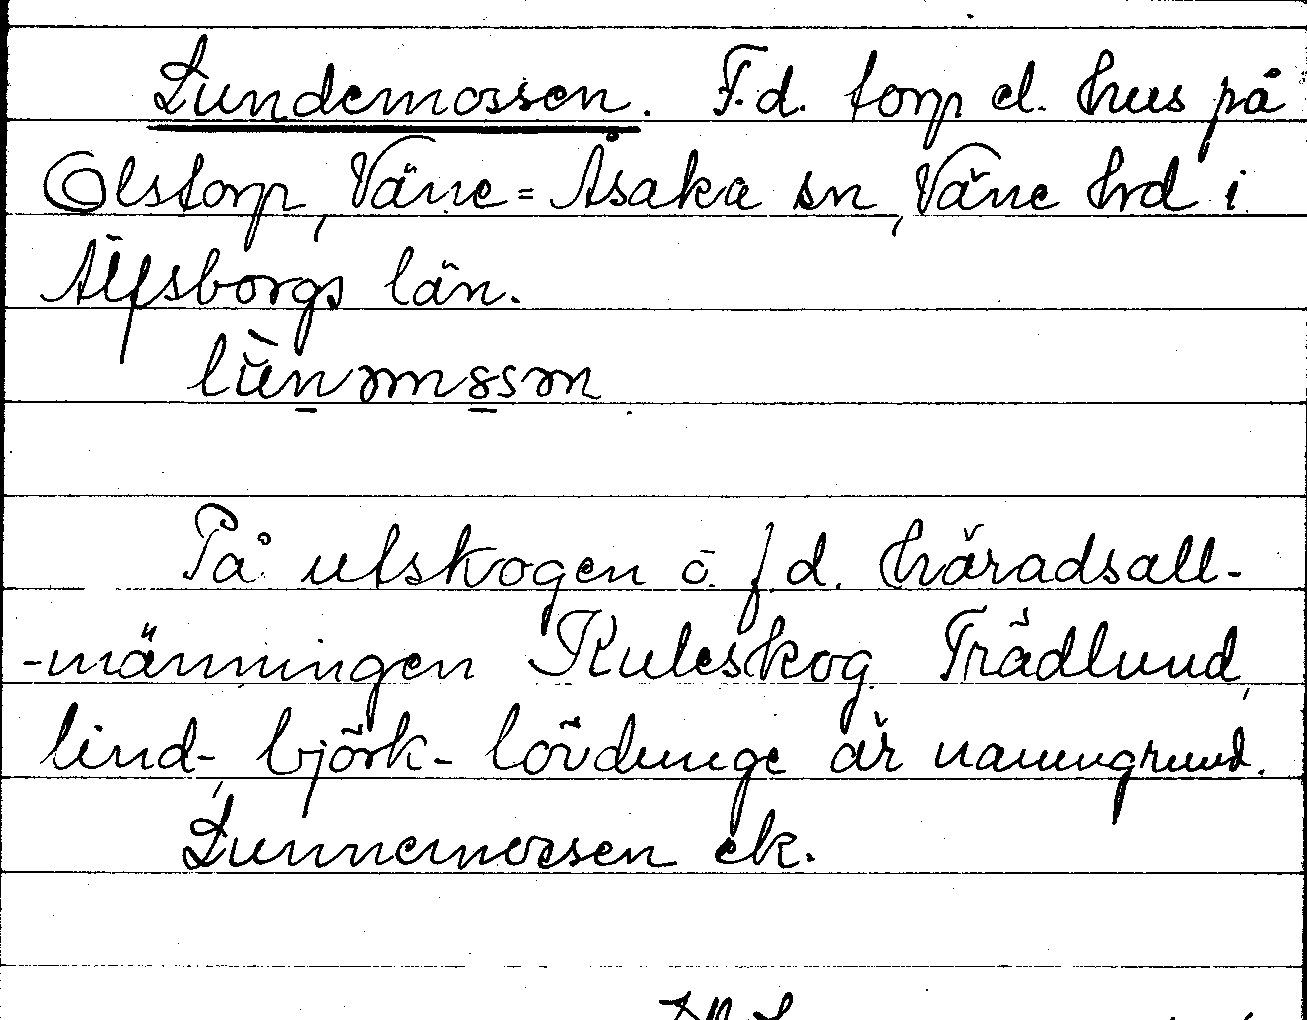 Lundemossen. F.d. torp el. hus på
Olstorp, Väne=Åsaka sn, Väne hrd i
Älfsborgs län.
På utskogen å f d. häradsall-
-männingen Kuleskog Trädlund,
lind-, björk- lövdunge är namngrund.
Lunnemossen ek.